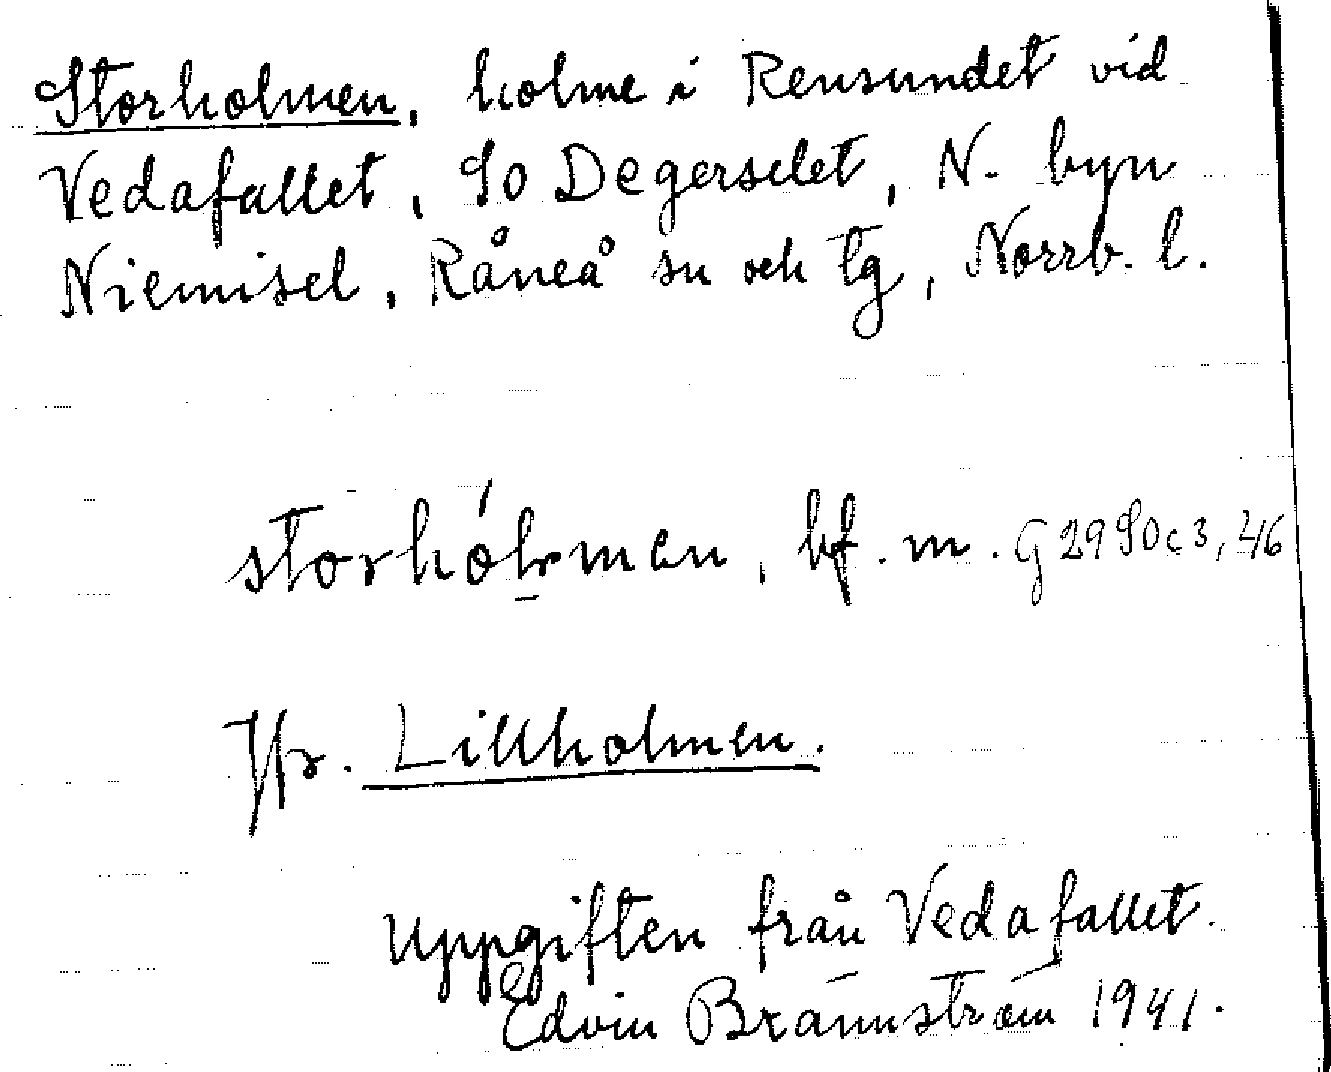 Storholmen, holme i Rensundet vid
Vedafallet, SO Degerselet, N. byn
Niemisel, Råneå sn och tg, Norrb. l.
storhólmen, bf. m. G 29 SO c 3, 46
Jfr. Lillholmen.
Uppgiften från Vedafallet.
Edvin Brännström 1941.